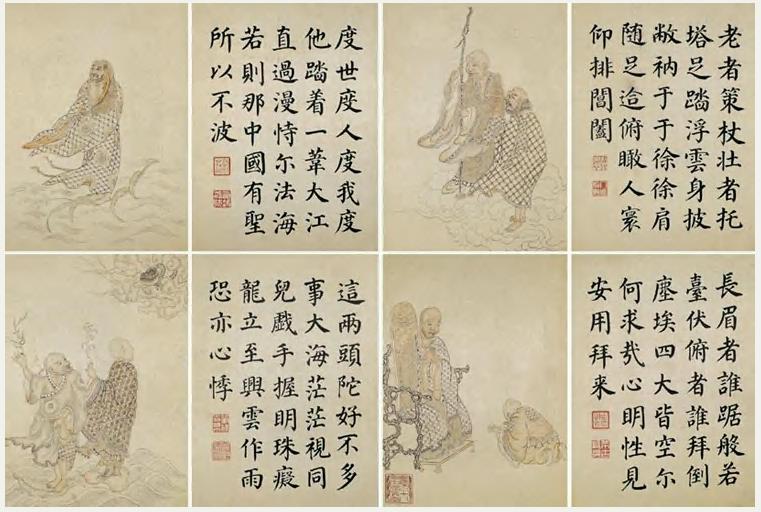 老者策杖壮者托
塔足踏浮雲身披
敝衲于于徐徐肩
随足迨俯瞰人寰
仰排閶闔
度世度人度我度
他踏着一葦大江
直過漫恃尔法海
若則那中國有聖
所以不波
長眉者誰踞般若
臺伏俯者誰拜倒
塵埃四大皆空尔
何求㢤心明性見
安用拜来
這兩頭陀好不多
事大海茫茫視同
兒戯手握明珠癡
龍立至興雲作雨
恐亦心悸